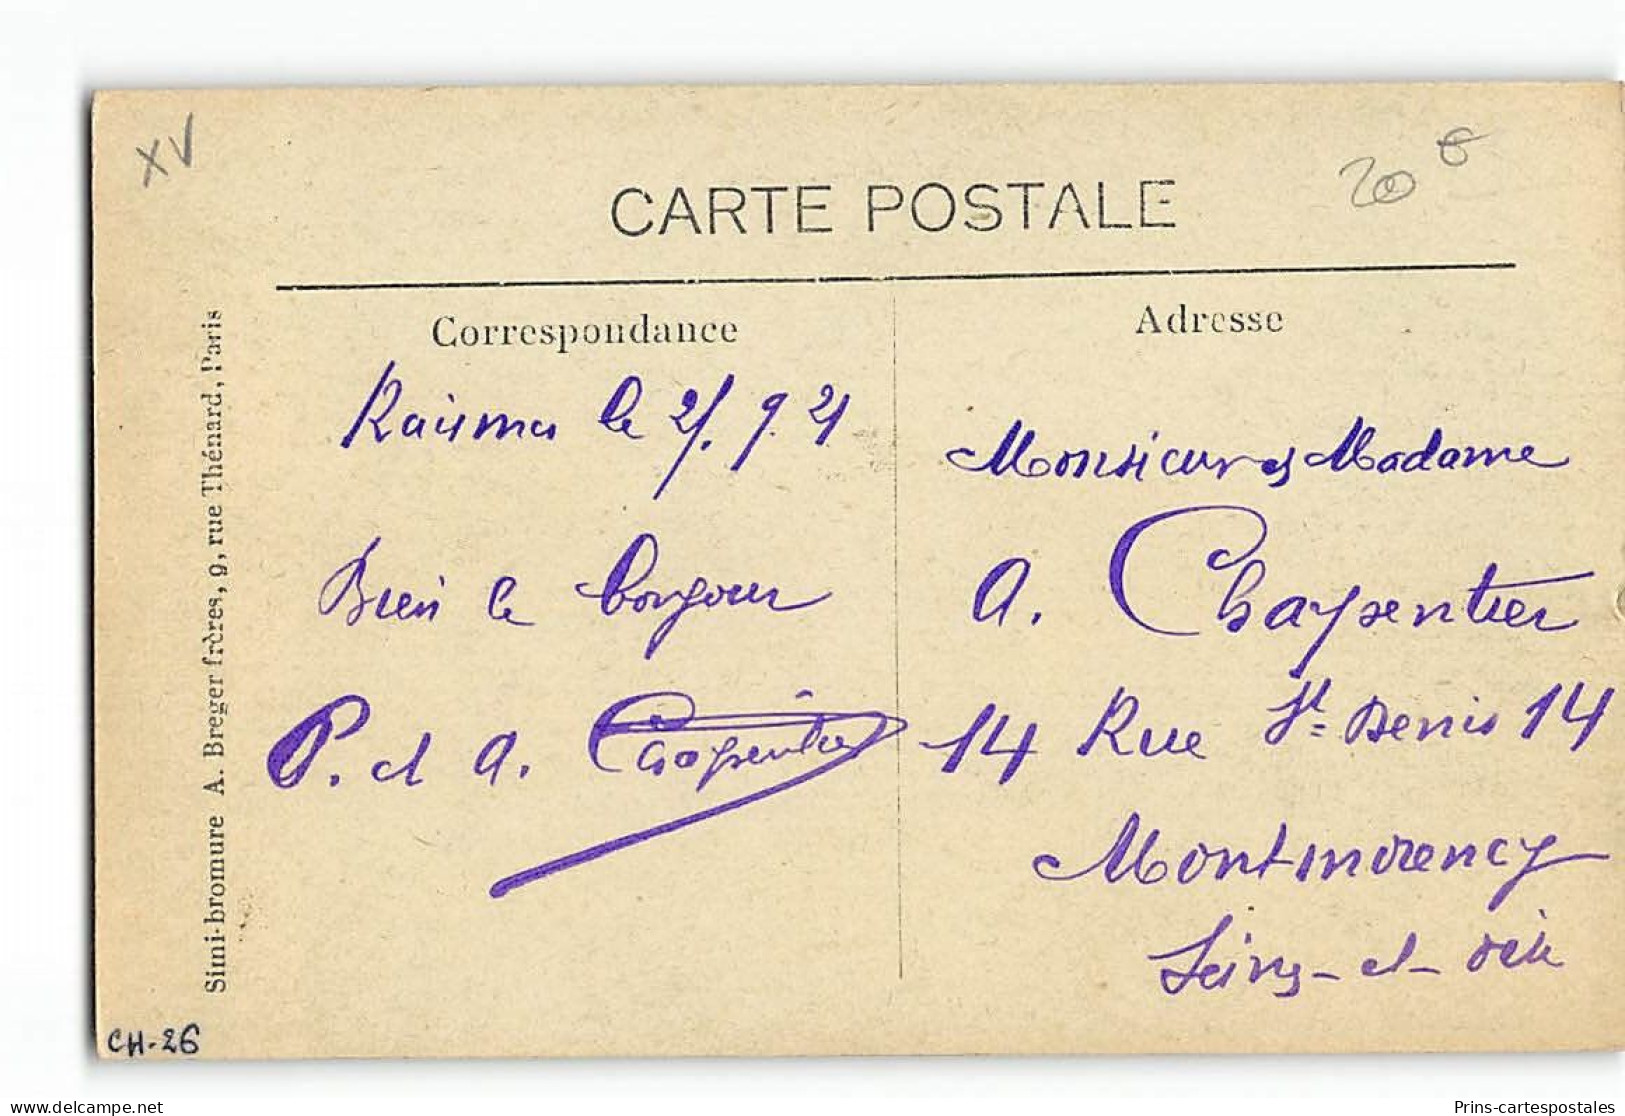 XV
20 €
CARTE POSTALE
Correspondance
Adresse
Raismes le 21.9.21
Bien le bonjour
P. et A. Charpentier
Monsieur et Madame
A. Charpentier
14 Rue St Denis 14
Montmorency
Seine-et-Oise
Simi-bromure A. Breger frères, 9, rue Thénard, Paris
CH-26
delcampe.net
Prins-cartespostales